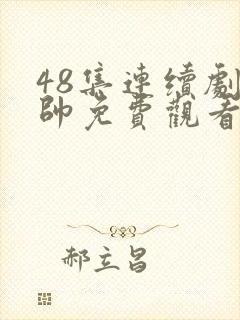 48集連續劇
帥免費觀看
郝立昌